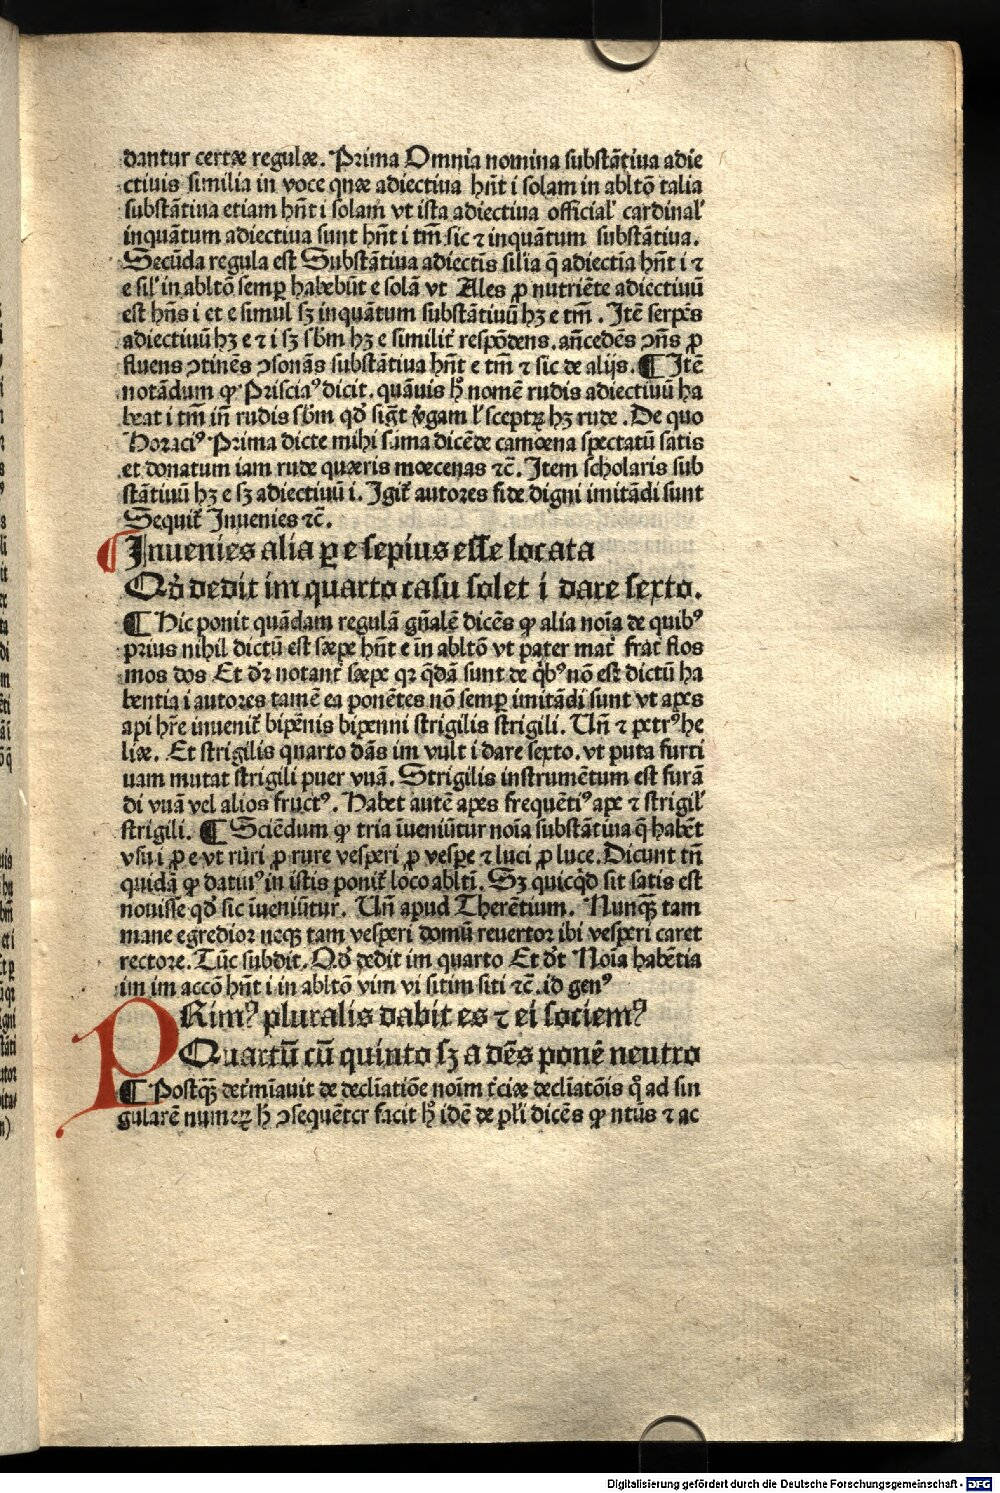 dantur certæ regulæ. Prima Omnia nomina substātiua adie
ctiuis similia in voce quæ adiectiua hn̄t i solam in abltō talia
substātiua etiam hn̄t i solam vt ista adiectiua official' cardinal'
inquātum adiectiua sunt hn̄t i tm̄ sic ⁊ inquātum substātiua.
Secūda regula est Substātiua adiectīs silia q̄ adiectia hn̄t i ⁊
e sil' in abltō semꝑ habebūt e solā vt Ales ꝓ nutriēte adiectiuū
est hn̄s i et e simul sꝫ inquātum substātiuū hꝫ e tm̄. Itē serpēs
adiectiuū hꝫ e ⁊ i sꝫ sb̄m hꝫ e similit̄ respōdens. an̄cedēs ↄn̄s ꝓ
fluens ↄtinēs ↄsonās substātiua hn̄t e tm̄ ⁊ sic de alijs. ¶ Itē
notādum ꝙ Prisciaꝰ dicit. quāuis h̄ nomē rudis adiectiuū ha
beat i tm̄ in̄ rudis sb̄m qd̄ sig̅t v̄gam l' sceptꝝ hꝫ rude. De quo
Horaciꝰ Prima dicte mihi sūma dicēde camœna spectatū satis
et donatum iam rude quæris mœcenas ⁊c̄. Item scholaris sub
stātiuū hꝫ e sꝫ adiectiuū i. Igit̄ autores fide digni imitādi sunt
Sequit̄ Inuenies ⁊c̄.
¶ Inuenies alia ꝑ e sepius esse locata
Qd̄ dedit im quarto casu solet i dare sexto.
¶ Hic ponit quādam regulā gn̄alē dicēs ꝙ alia noīa de quibꝰ
prius nihil dictū est sæpe hn̄t e in abltō vt pater mat̄ frat̄ flos
mos dos Et dr̄ notant̄ sæpe qꝛ q̄dā sunt de q̄bꝰ nō est dictū ha
bentia i autores tamē ea ponētes nō semꝑ imitādi sunt vt apes
api hr̄e inuenit̄ bipēnis bipenni strigilis strigili. Un̄ ⁊ petrꝰ he
liæ. Et strigilis quarto dās im vult i dare sexto. vt puta furti
uam mutat strigili puer vuā. Strigilis instrumētum est furā
di vuā vel alios fructꝰ. Habet autē apes frequētiꝰ ape ⁊ strigil'
strigili. ¶ Sciēdum ꝙ tria īueniūtur noīa substātiua q̄ habēt
vsū i ꝓ e vt ruri ꝓ rure vesperi ꝓ vespe ⁊ luci ꝓ luce. Dicunt tn̄
quidā ꝙ datiuꝰ in istis ponit̄ loco abltī. Sꝫ quicq̄d sit satis est
nouisse qd̄ sic īueniūtur. Un̄ apud Therētium. Nunqꝫ tam
mane egredior neqꝫ tam vesperi domū reuertor ibi vesperi caret
rectore. Tūc subdit. Qd̄ dedit im quarto Et dr̄t Noīa habētia
im im accō hn̄t i in abltō vim vi sitim siti ⁊c̄. id genꝰ
PRimꝰ pluralis dabit es ⁊ ei sociemꝰ
Quartū cū quinto sꝫ a dēs ponē neutro
¶ Postqꝫ̄ det̄mīauit de decliatiōe noīm t̄ciæ decliatōis qͦ ad sin
gularē numeꝝ h̄ ↄsequēter facit h̄ idē de pl̄i dicēs ꝙ nt̄us ⁊ ac
Digitalisierung gefördert durch die Deutsche Forschungsgemeinschaft - DFG